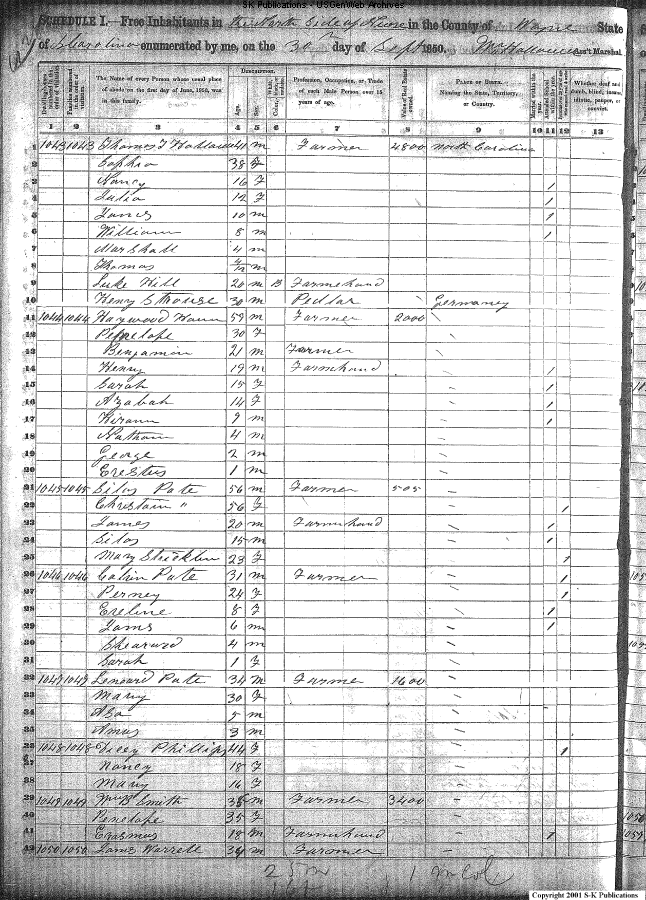 SK Publications - USGenWeb Archives
SCHEDULE I.—Free Inhabitants in the North Side of Neuse in the County of Wayne State
of N Carolina enumerated by me, on the 30th day of Sept 1850. Ass't Marshal.
The Name of every Person whose usual place of abode on the first day of June, 1850, was in this family.
DESCRIPTION.
Age.
Sex.
Profession, Occupation, or Trade of each Male Person over 15 years of age.
Value of Real Estate owned.
PLACE OF BIRTH. Naming the State, Territory, or Country.
Married within the year.
Whether deaf and dumb, blind, insane, idiotic, pauper, or convict.
1 2 3 4 5 6 7 8 9 10 11 12 13
1 1043 1043 Thomas T 41 m Farmer 4800 North Carolina
2 Sophia 38 F
3 Nancy 16 F
4 Julia 12 F 1
5 James 10 m 1
6 William 8 m 1
7 Marshall 4 m
8 Thomas m
9 Luke Hill 20 m B Farmehand
10 Henry Strouse 30 m Pedlar Germaney
11 1044 1044 Haywood Ham 59 m Farmer 2000
12 Penelope 30 F
13 Benjamin 21 m Farmer
14 Henry 19 m Farmhand 1
15 Sarah 15 F 1
16 Azabah 14 F 1
17 Hiram 9 m 1
18 Nathan 4 m
19 George 2 m
20 Erestus 1 m
21 1045 1045 Silos Pate 56 m Farmer 505
22 Christain " 56 F 1
23 James 20 m Farmhand 1
24 Silos 15 m 1
25 Mary 23 F 1
26 1046 1046 Calvin Pate 31 m Farmer 1
27 Perney 24 F 1
28 Eveline 8 F 1
29 Jams 6 m 1
30 Shearwood 4 m
31 Sarah 1 F
32 1047 1047 Lenoard Pate 34 m Farmer 1600
33 Mary 30 F
34 Asa 5 m
35 Amus 3 m
36 1048 1048 Vicey Phillips 44 F 1
37 Nancy 18 F
38 Mary 16 F
39 1049 1049 Wm B Smith 38 m Farmer 3400
40 Penelope 35 F
41 Erasmus 18 m Farmhand 1
42 1050 1050 Jams Worrell 34 m Farmer
25 m 1 m Col
Copyright 2001 S-K Publications